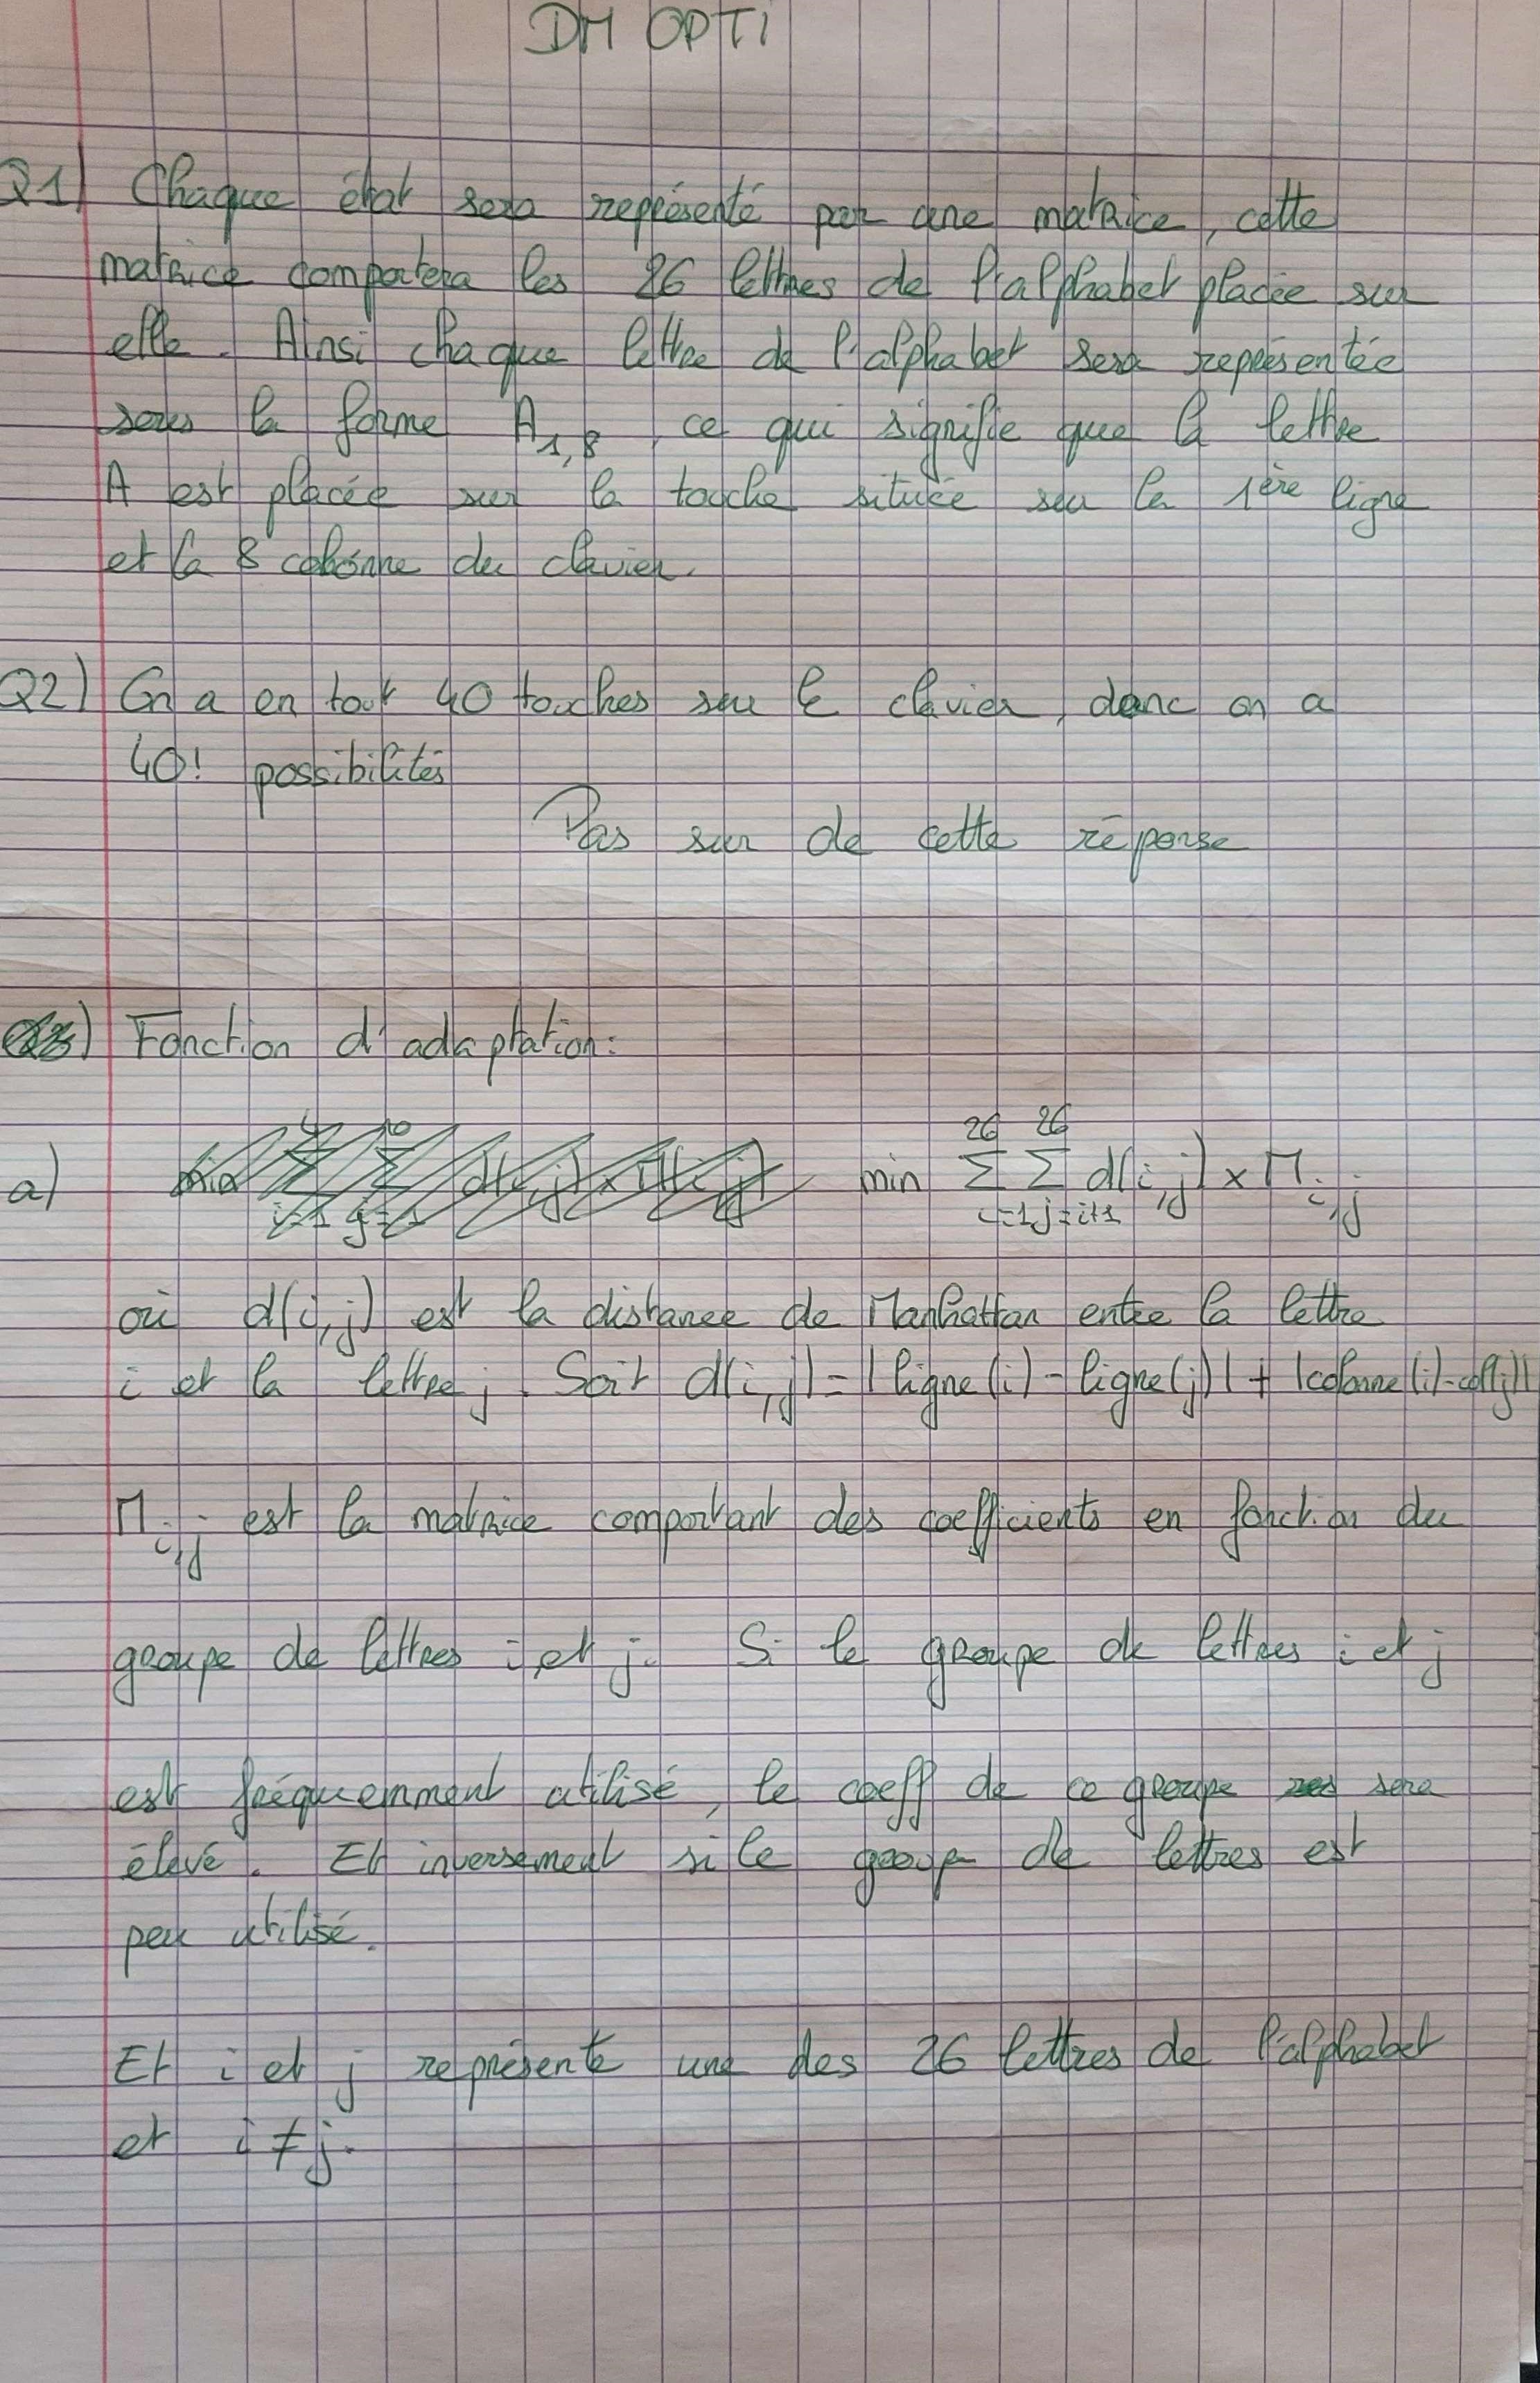 DM OPTI
Q1) Chaque état sera représenté par une matrice, cette
matrice comportera les 26 lettres de l'alphabet placée sur
elle. Ainsi chaque lettre de l'alphabet sera représentée
sous la forme A1,8, ce qui signifie que la lettre
A est placée sur la touche située sur la 1ère ligne
et la 8 colonne du clavier.
Q2) On a en tout 40 touches sur le clavier, donc on a
40! possibilités
Pas sur de cette réponse
) Fonction d'adaptation:
a) min Σ_{i=1}^{26} Σ_{j=i+1}^{26} d(i,j) × M_{i,j}
où d(i,j) est la distance de Manhattan entre la lettre
i et la lettre j. Soit d(i,j) = |ligne(i) - ligne(j)| + |colonne(i) - col(j)|
M_{i,j} est la matrice comportant des coefficients en fonction du
groupe de lettres i et j. Si le groupe de lettres i et j
est fréquemment utilisé, le coeff de ce groupe sera
élevé. Et inversement si le group de lettres est
peu utilisé.
Et i et j représente une des 26 lettres de l'alphabet
et i ≠ j.